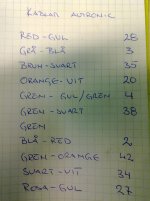 KABLAR AUTRONIC
RED-GUL 28
GRÅ-BLÅ 3
BRUN-SVART 35
ORANGE-VIT 20
GRÖN-GUL/GRÖN 4
GRÖN-SVART 38
GRÖN
BLÅ-RED 2
GRÖN-ORANGE 42
SVART-VIT 34
ROSA-GUL 27